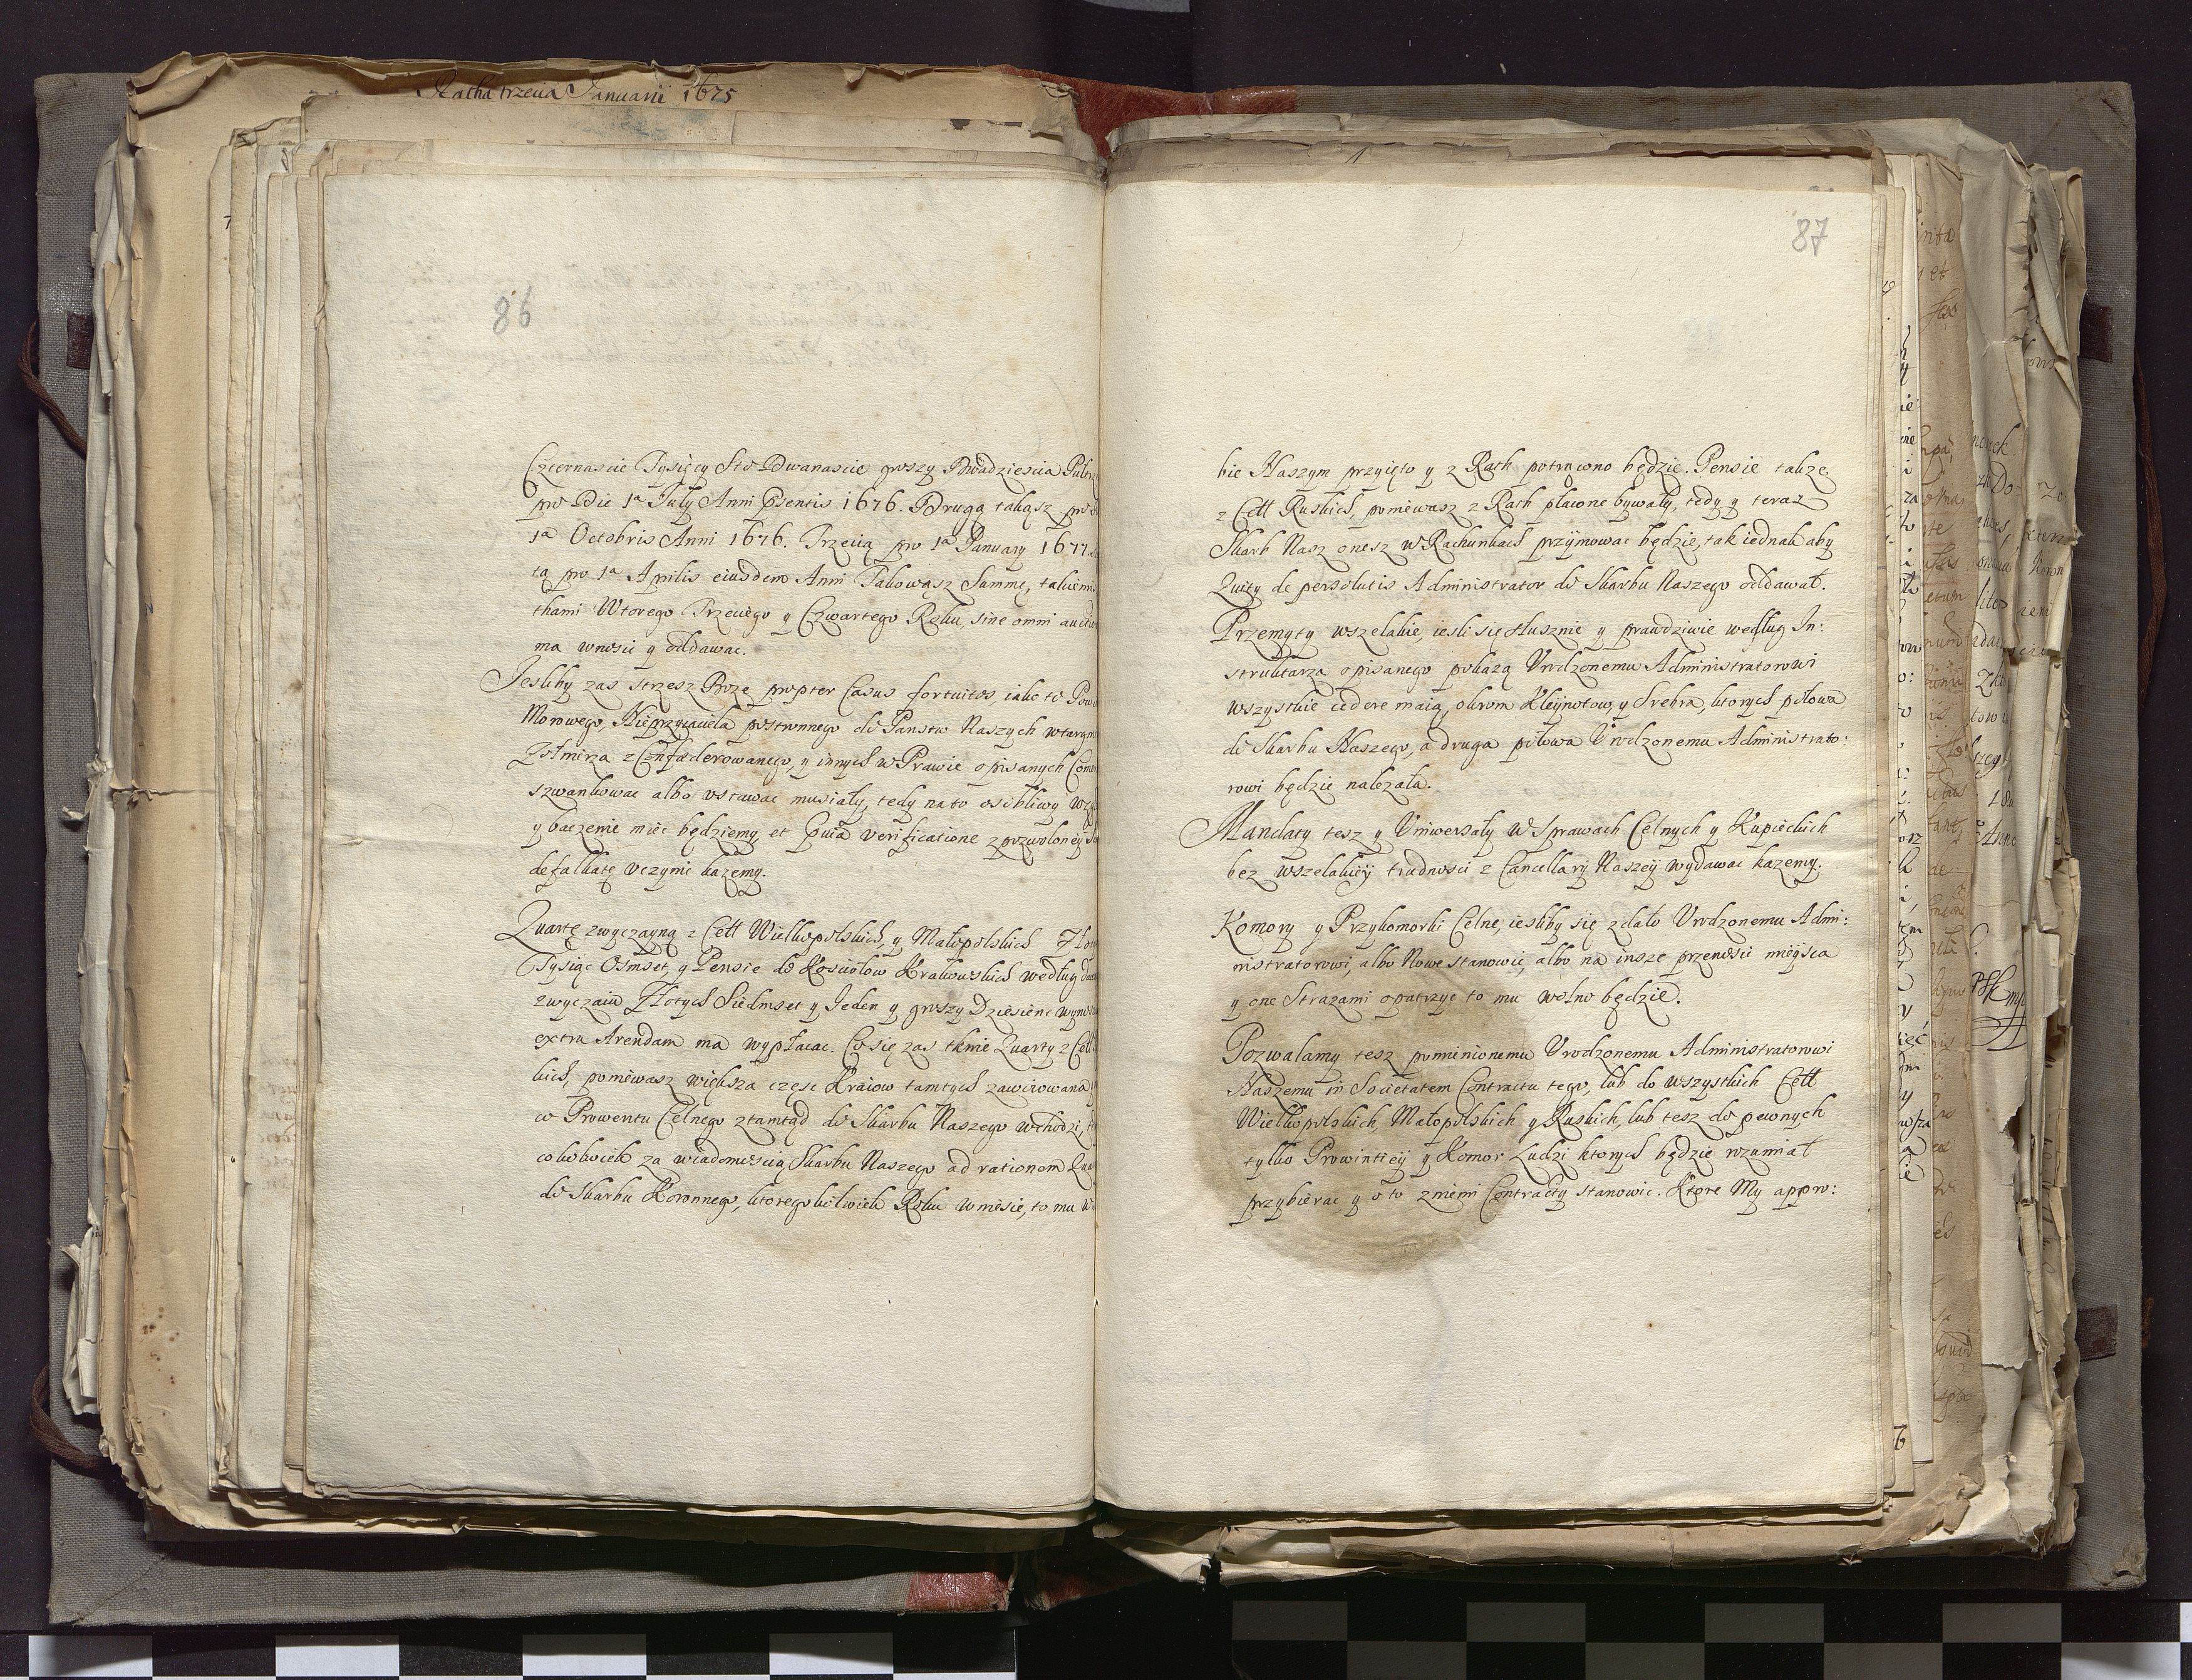 Ratha trzecia Ianuarii 1675
86
Czternascie Tysięcy Sto Dwanascie groszy Dwadziescia
pro Die 1a July Anni Psentis 1676. Drugą takąsz pro
1a Octobris Anni 1676. Trzecią pro 1a January 1677.
tą pro 1a Aprilis eiusdem Anni Takowąsz Summę, takiemi
thami Wtorego Trzeciego y Czwartego Roku, sine omni
ma wnosic y oddawac.
Jesliby zas strzesz Boze propter Casus fortuitos, iako to
Morowego, Nieprzyiaciela postronnego do Panstw Naszych
Zołnirza z Confæderowanego, y innych w Prawie opisanych
szwankowac albo vstawac musiały, tedy na to osobliwy
y baczenie miec będziemy, et prvia verificatione z pozwoloney
defalkatę vczynic kazemy.
Quartę zwyczayną z Cełł Wielkopolskich, y Małopolskich
Tysiąc Osmset, y Pensie do Kosciołow Krakowskich według
zwyczaiu Złotych Siedmset y Jeden y groszy Dziesienc
extra Arendam ma wypłacac. Co się zas tknie Quarty z Cełł
kich, poniewasz większa częsc Kraiow tamtych zawoiowana
co Prowentu Celnego ztamtąd do Skarbu Naszego wchodzi,
cokolwiek za wiadomoscią Skarbu Naszego ad rationem
do Skarbu Koronnego, ktoregokolwiek Roku wniesie, to mu
87
bie Naszym przyięto y z Rath potrącono będzie. Pensie takze
z Cełł Ruskich, poniewasz z Rath płacone bywały, tedy y teraz
Skarb Nasz onesz w Rachunkach przyimowac będzie, tak iednak aby
Quity de persolutis Administrator do Skarbu Naszego oddawał.
Przemyty wszelakie, iesli się słusznie y prawdziwie według In:
struktarza opisanego pokazą Vrodzonemu Administratorowi
wszystkie cedere maią, okrom Kleynotow, y Srebra, ktorych połowa
do Skarbu Naszego, a druga połowa Vrodzonemu Administrato:
rowi będzie nalezała.
Mandaty tesz y Vniwersały w Sprawach Celnych y Kupieckich
bez wszelakiey trudnosci z Cancellary Naszey wydawac kazemy.
Komory y Przykomorki Celne, iesliby się zdało Vrodzonemu Admi:
nistratorowi, albo Nowe stanowic, albo na insze przenosic mieysca
y one Strazami opatrzyc to mu wolno będzie.
Pozwalamy tesz pomienionemu Vrodzonemu Administratorowi
Naszemu in Societatem Contractu tego, lub do wszystkich Cełł
Wielkopolskich, Małopolskich y Ruskich, lub tesz do pewnych
tylko Prowintiey y Komor Ludzi ktorych będzie rozumiał
przybierac y o to z niemi Contracty stanowic. Ktore My appro: